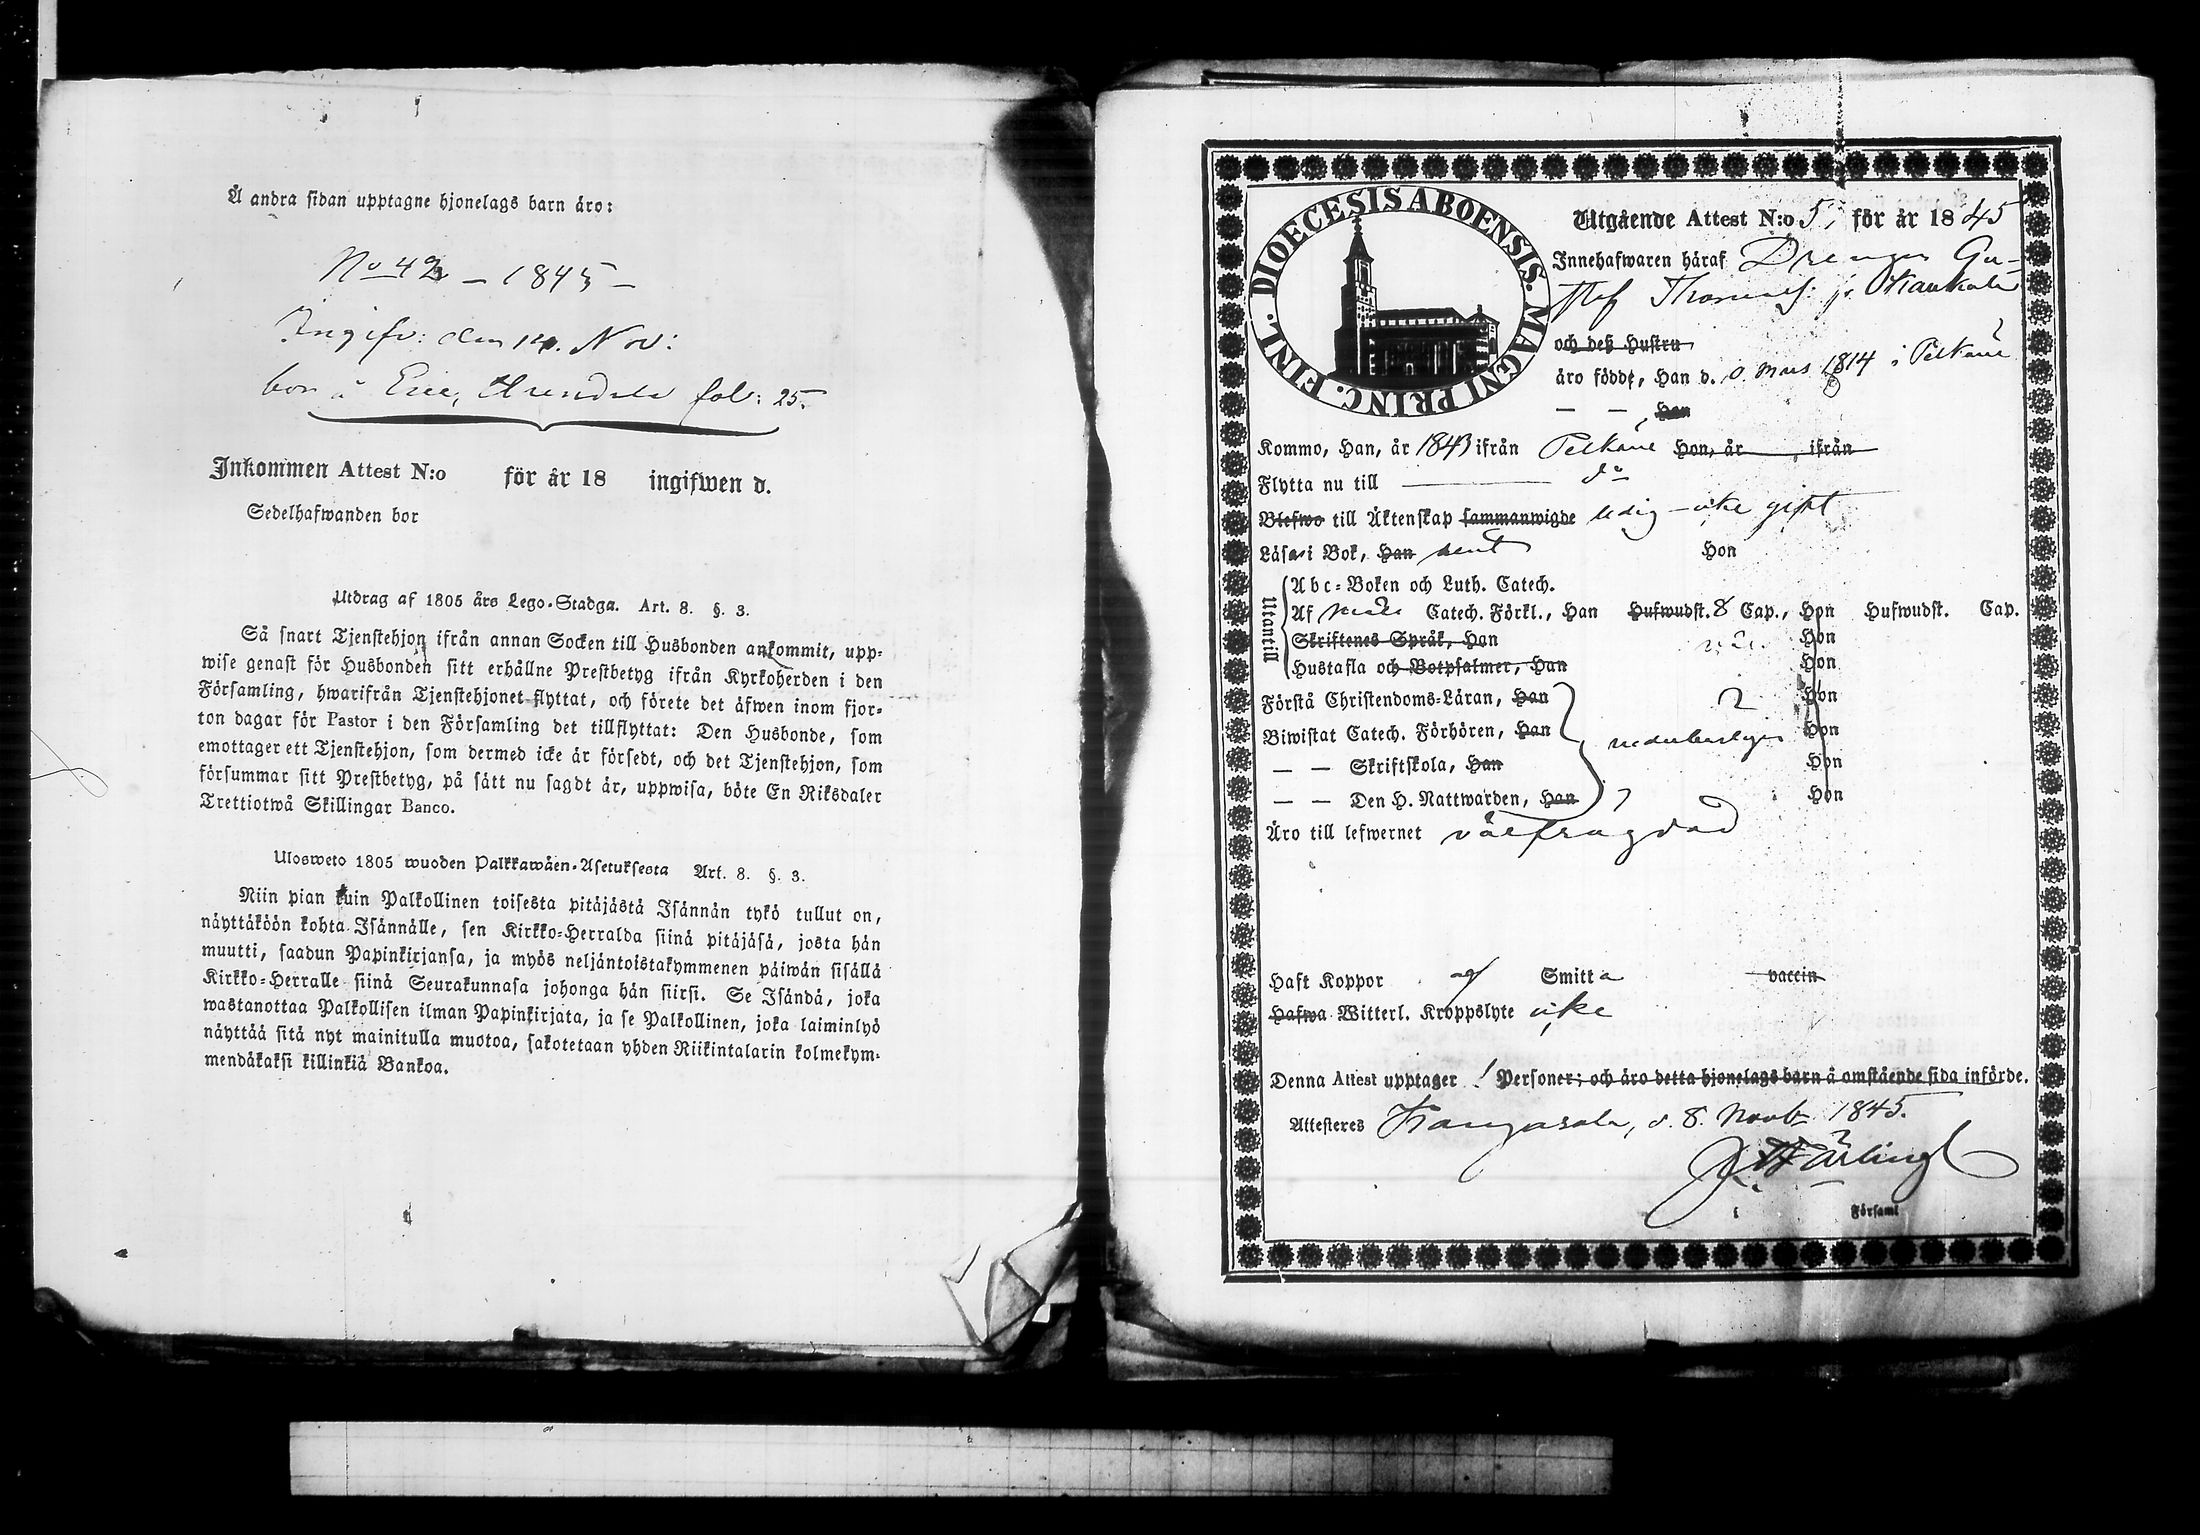 Å andra sidan upptagne hjonelags barn äro:
No 42 – 1845 –
Ingifv: den 14. Nov:
bor å Eric, fol: 25.
Inkommen Attest N:o för år 18 ingifwen d.
Sedelhafwanden bor
Utdrag af 1805 års Lego-Stadga. Art. 8. §. 3.
Så snart Tjenstehjon ifrån annan Socken till Husbonden ankommit, upp-
wise genast för Husbonden sitt erhållne Prestbetyg ifrån Kyrkoherden i den
Församling, hwarifrån Tjenstehjonet flyttat, och förete det äfwen inom fjor-
ton dagar för Pastor i den Församling det tillflyttat: Den Husbonde, som
emottager ett Tjenstehjon, som dermed icke är försedt, och det Tjenstehjon, som
försummar sitt Prestbetyg, på sätt nu sagdt är, uppwisa, böte En Riksdaler
Trettiotwå Skillingar Banco.
Ulosweto 1805 wuoden Palkkawäen-Asetuksesta Art. 8. §. 3.
Niin pian kuin Palkollinen toisesta pitäjästä Isännän tykö tullut on,
näyttäköön kohta Isännälle, sen Kirkko-Herralda siinä pitäjäsä, josta hän
muutti, saadun Papinkirjansa, ja myös neljäntoistakymmenen päiwän sisällä
Kirkko-Herralle siinä Seurakunnasa johonga hän siirsi. Se Isändä, joka
wastanottaa Palkollisen ilman Papinkirjata, ja se Palkollinen, joka laiminlyö
näyttää sitä nyt mainitulla muotoa, sakotetaan yhden Riikintalarin kolmekym-
mendäkaksi killinkiä Bankoa.
DIOECESIS ABOENSIS. MAGNI PRINC. FINL.
Utgående Attest N:o 5, för år 1845
Innehafwaren häraf Drengen Gu-
staf Thomasf: fr. Kaukala
och deß Hustru
äro född, Han d. 0 Mars 1814 i Pelkäne
— — Hon
Kommo, Han, år 1843 ifrån Pelkäne Hon, år ifrån
Flytta nu till do
Blefwo till Äktenskap sammanwigde ledig – icke gift
Läsa i Bok, Han rent Hon
Utantill
Abc-Boken och Luth. Catech.
Af Catech. Förkl., Han Hufwudst. 8 Cap., Hon Hufwudst. Cap.
Skriftenes Språk, Han Hon
Hustafla och Botpsalmer, Han Hon
Förstå Christendoms-Läran, Han Hon
Biwistat Catech. Förhören, Han Hon
— — Skriftskola, Han Hon
— — Den H. Nattwarden, Han Hon
Äro till lefwernet välfrägdad
Haft Koppor af Smitta vaccin
Hafwa Witterl. Kroppslyte icke
Denna Attest upptager 1 Personer; och äro detta hjonelags barn å omstående sida införde.
Attesteres Kangasala, d. 8. Novb 1845.
i Församl